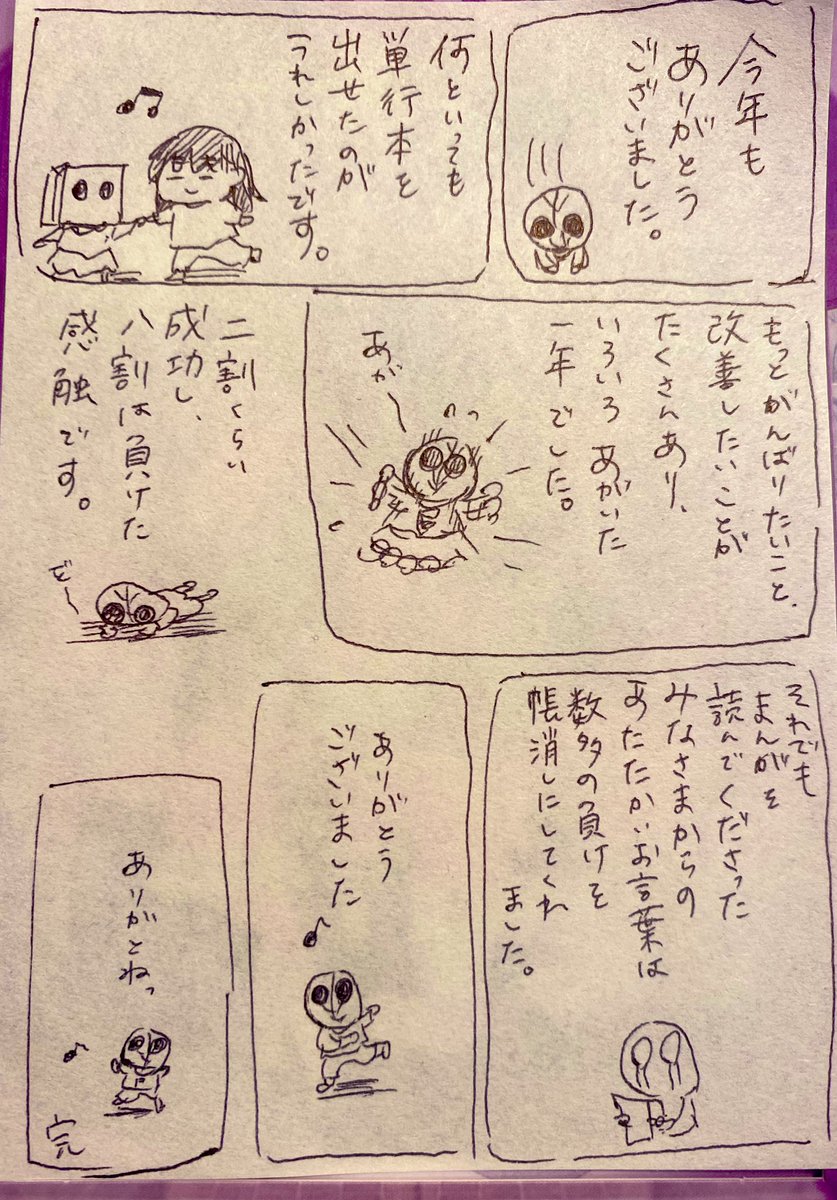 今年も
ありがとう
ございました。
何といっても
単行本を
出せたのが
うれしかったです。
もっとがんばりたいこと、
改善したいことが
たくさんあり、
いろいろ あがいた
一年でした。
あが〜
二割くらい
成功し、
八割は負けた
感触です。
ど〜
それでも
まんがを
読んでくださった
みなさまからの
あたたかいお言葉は
数多の負けを
帳消しにしてくれ
ました。
ありがとう
ございました
ありがとねっ
完